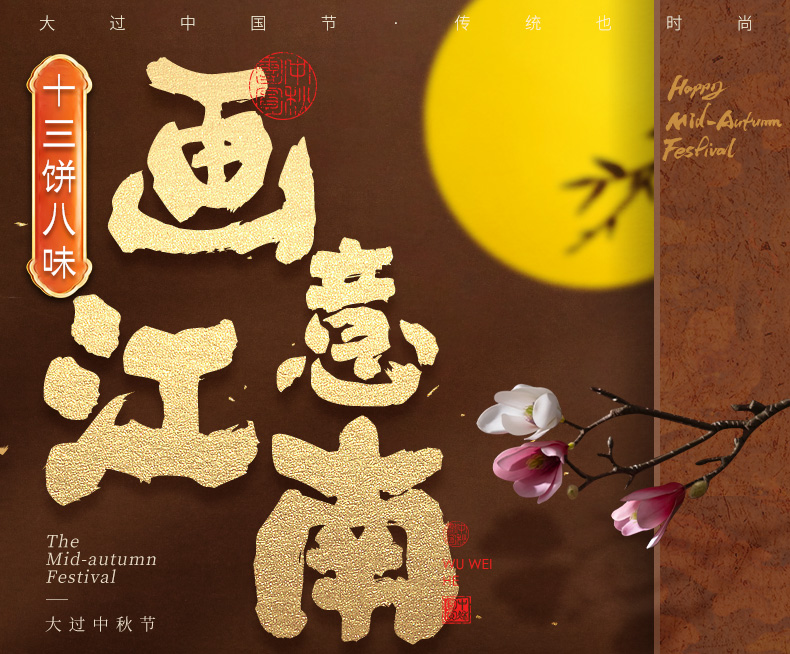 大过中国节·传统也时尚
十三饼八味
画意江南
Happy
Mid-Autumn
Festival
WU WEI
HE
The
Mid-autumn
Festival
大过中秋节